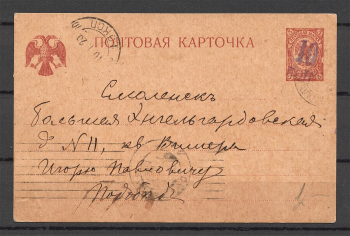 ПОЧТОВАЯ КАРТОЧКА
10
Смоленскъ
Большая Энгельгардовская
д N 11, кв
Игорю Павловичу